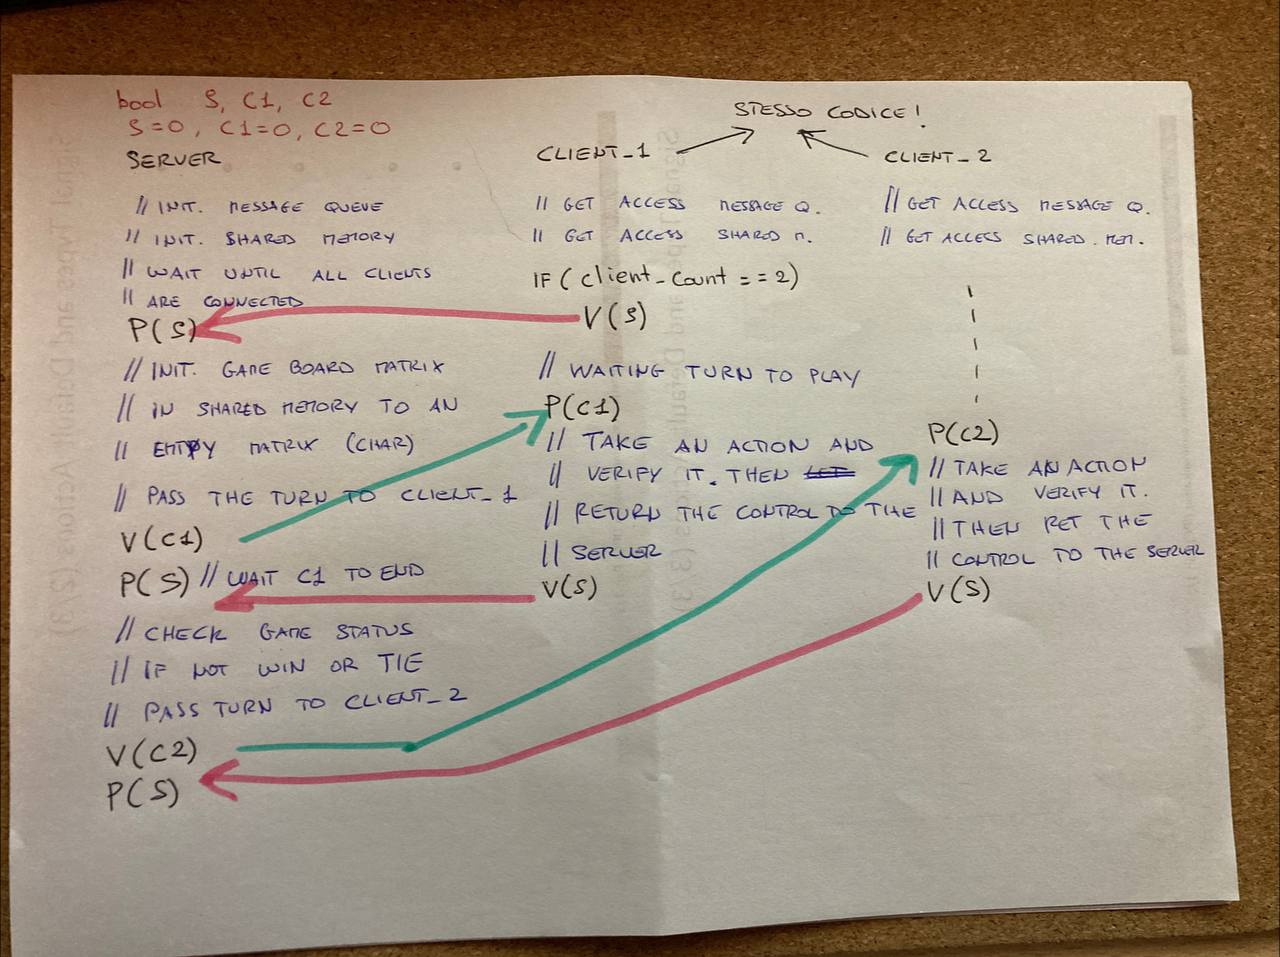 bool S, C1, C2
S=0, C1=0, C2=0
SERVER
// INIT. MESSAGE QUEUE
// INIT. SHARED MEMORY
// WAIT UNTIL ALL CLIENTS
// ARE CONNECTED
P(S)
// INIT. GAME BOARD MATRIX
// IN SHARED MEMORY TO AN
// EMTPY MATRIX (CHAR)
// PASS THE TURN TO CLIENT_1
V(C1)
P(S) // WAIT C1 TO END
// CHECK GAME STATUS
// IF NOT WIN OR TIE
// PASS TURN TO CLIENT_2
V(C2)
P(S)
STESSO CODICE!
CLIENT_1
// GET ACCESS MESSAGE Q.
// GET ACCESS SHARED M.
IF (client_count == 2)
V(S)
// WAITING TURN TO PLAY
P(C1)
// TAKE AN ACTION AND
// VERIFY IT. THEN
// RETURN THE CONTROL TO THE
// SERVER
V(S)
CLIENT_2
// GET ACCESS MESSAGE Q.
// GET ACCESS SHARED. MEM.
P(C2)
// TAKE AN ACTION
// AND VERIFY IT.
// THEN RET THE
// CONTROL TO THE SERVER
V(S)